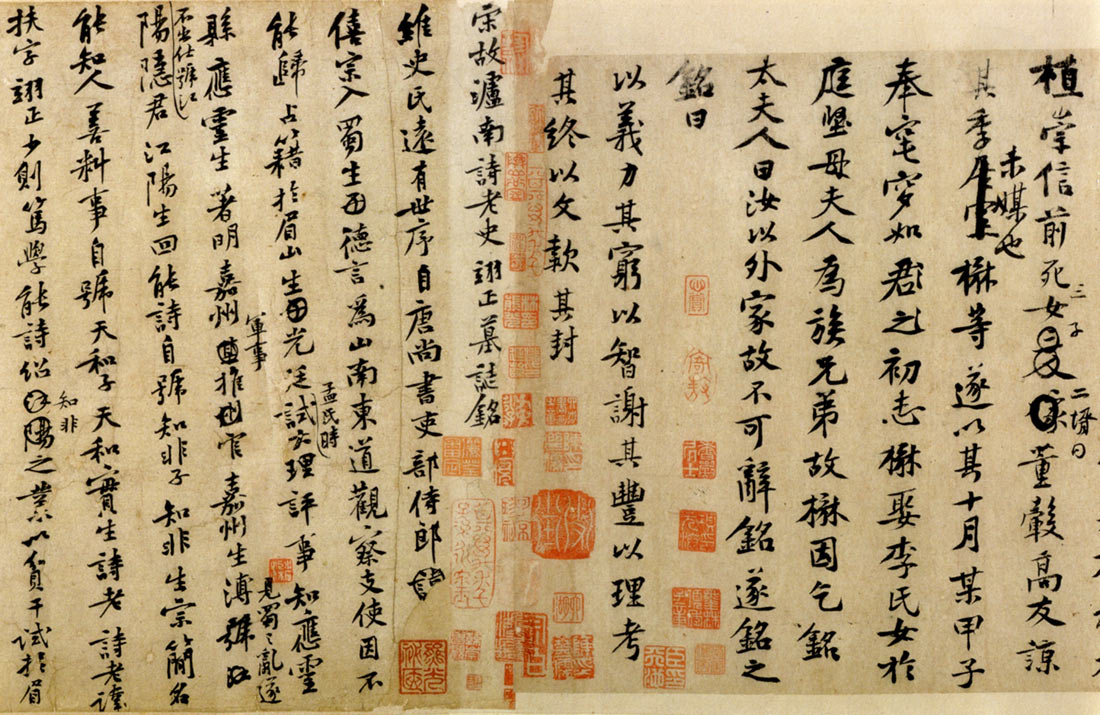 植崇信前死女三子二壻曰董轂高友諒
其季未媒也楙等遂以其十月某甲子
奉窀穸如君之初志楙娶李氏女於
庭堅母夫人為族兄弟故楙因乞銘
太夫人曰汝以外家故不可辭銘遂銘之
銘曰
以義力其窮以智謝其豐以理考
其終以文款其封
宋故瀘南詩老史翊正墓誌銘
維史氏遠有世序自唐尚書吏部侍郎
僖宗入蜀生德言爲山南東道觀察支使因不
能歸占籍於眉山生光庭孟氏時試大理評事知應靈
縣應靈生著明嘉州軍事推官嘉州生溥見蜀之亂遂
不出仕號江
陽隱君江陽生回能詩自號知非子知非生宗簡名
能知人善料事自號天和子天和實生詩老詩老諱
扶字翊正少則篤學能詩紹知非之業以貧干試於眉